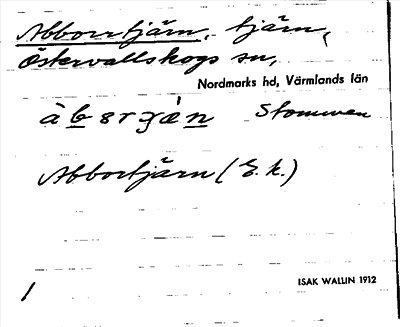 Abborrtjärn, tjärn,
Östervallskogs sn,
Nordmarks hd, Värmlands län
Stommen
Abbortjärn (E. k.)
ISAK WALLIN 1912
1